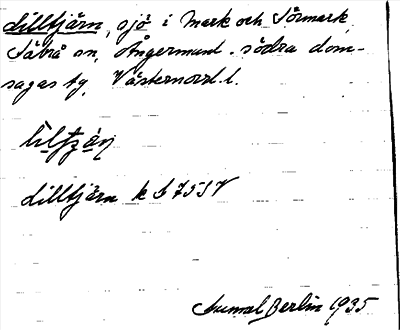 Lilltjärn, sjö i Mark och Sörmark,
Säbrå sn, Ångermanl. södra dom-
sagas tg, Västernorrl. l.
Lilltjärn k S 75 SV
Berlin 1935